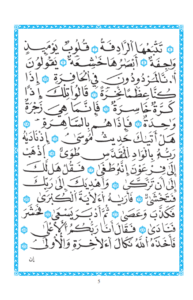 تَتْبَعُهَا ٱلرَّادِفَةُ قُلُوبٌ يَوْمَئِذٍ
وَاجِفَةٌ أَبْصَٰرُهَا خَٰشِعَةٌ يَقُولُونَ
أَءِنَّا لَمَرْدُودُونَ فِى ٱلْحَافِرَةِ أَءِذَا
كُنَّا عِظَٰمًا نَّخِرَةً قَالُوا۟ تِلْكَ إِذًا
كَرَّةٌ خَاسِرَةٌ فَإِنَّمَا هِىَ زَجْرَةٌ
وَٰحِدَةٌ فَإِذَا هُم بِٱلسَّاهِرَةِ
هَلْ أَتَىٰكَ حَدِيثُ مُوسَىٰٓ إِذْ نَادَىٰهُ
رَبُّهُۥ بِٱلْوَادِ ٱلْمُقَدَّسِ طُوًى ٱذْهَبْ
إِلَىٰ فِرْعَوْنَ إِنَّهُۥ طَغَىٰ فَقُلْ هَل لَّكَ
إِلَىٰٓ أَن تَزَكَّىٰ وَأَهْدِيَكَ إِلَىٰ رَبِّكَ
فَتَخْشَىٰ فَأَرَىٰهُ ٱلْءَايَةَ ٱلْكُبْرَىٰ
فَكَذَّبَ وَعَصَىٰ ثُمَّ أَدْبَرَ يَسْعَىٰ فَحَشَرَ
فَنَادَىٰ فَقَالَ أَنَا۠ رَبُّكُمُ ٱلْأَعْلَىٰ
فَأَخَذَهُ ٱللَّهُ نَكَالَ ٱلْءَاخِرَةِ وَٱلْأُولَىٰٓ